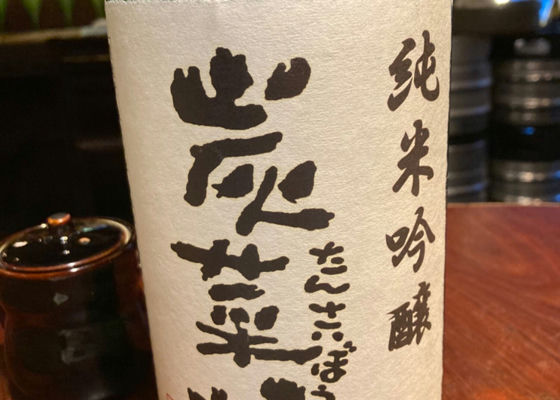 純米吟醸
炭菜
たんさいぼう